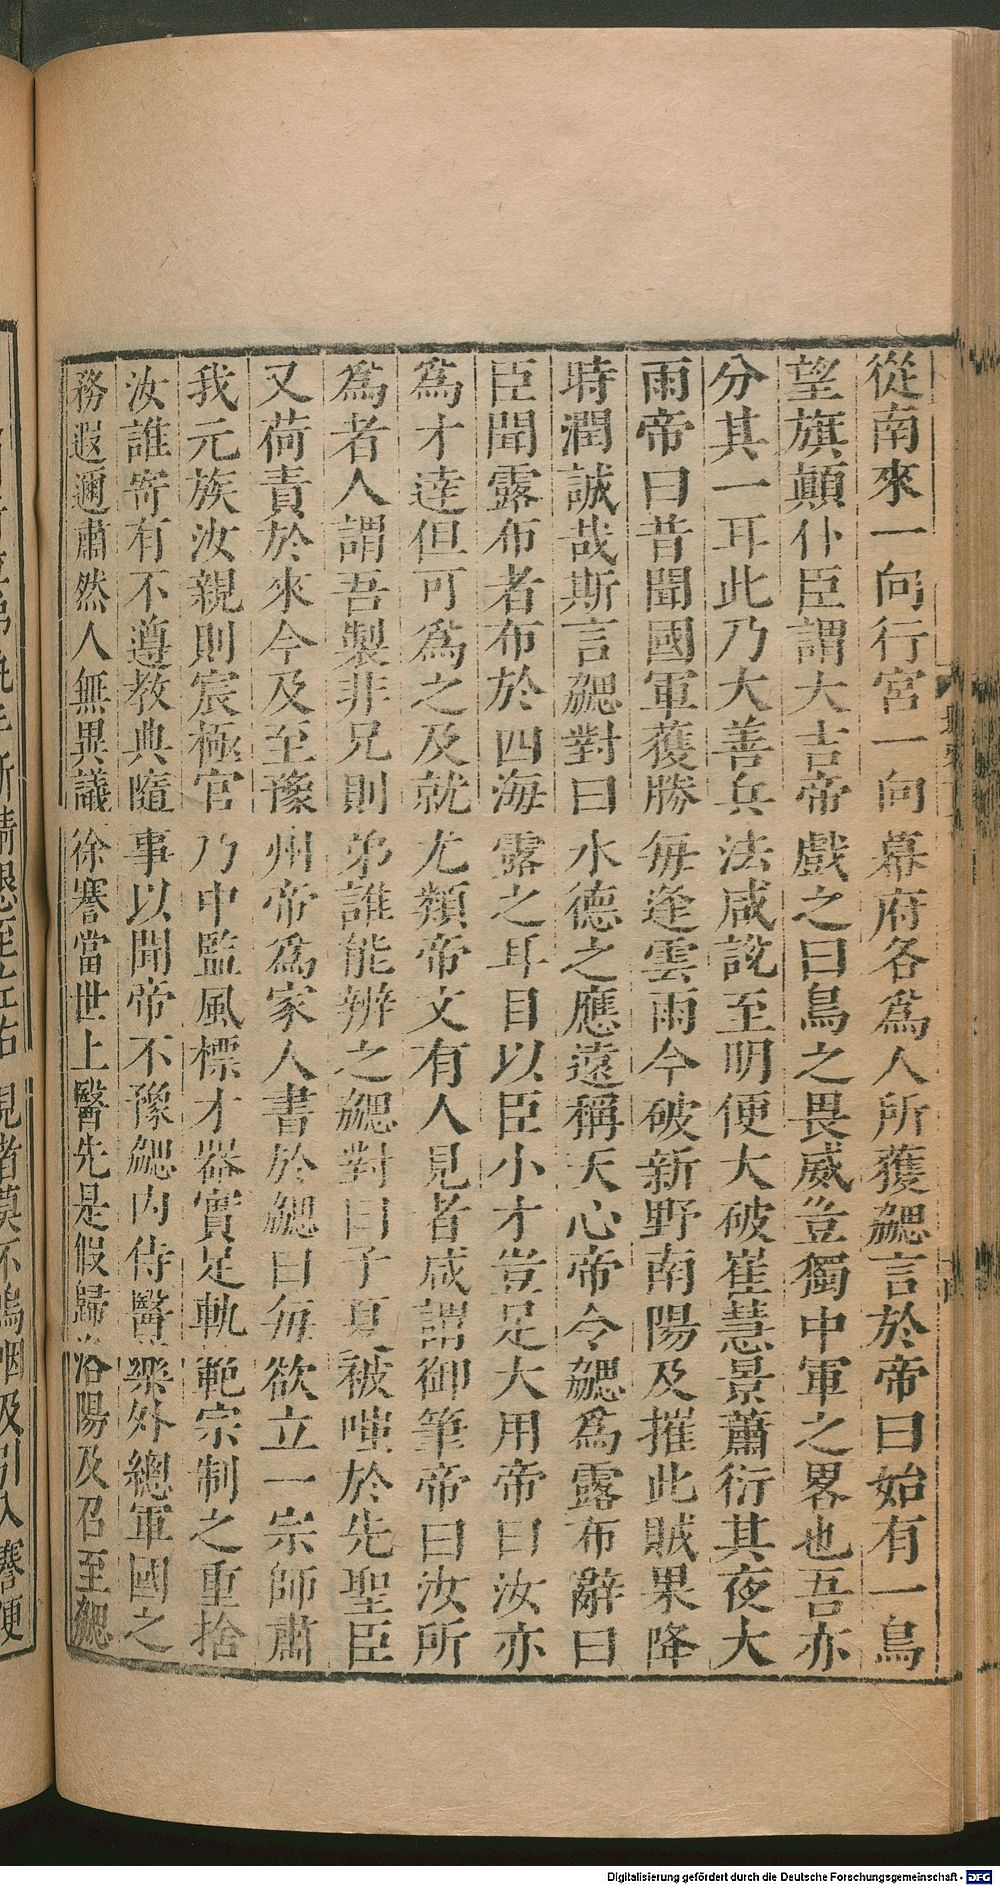 從南來一向行宮一向幕府各爲人所獲勰言於帝曰始有一鳥
望旗顛仆臣謂大吉帝戲之曰鳥之畏威豈獨中軍之畧也吾亦
分其一耳此乃大善兵法咸說至明便大破崔慧景蕭衍其夜大
雨帝曰昔聞國軍獲勝每逢雲雨今破新野南陽及摧此賊果降
時潤誠哉斯言勰對曰水德之應遠稱天心帝令勰爲露布辭曰
臣聞露布者布於四海露之耳目以臣小才豈足大用帝曰汝亦
爲才達但可爲之及就尤類帝文有人見者咸謂御筆帝曰汝所
爲者人謂吾製非兄則弟誰能辨之勰對曰子夏被嗤於先聖臣
又荷責於來今及至豫州帝爲家人書於勰曰每欲立一宗師肅
我元族汝親則宸極官乃中監風標才器實足軌範宗制之重捨
汝誰寄有不遵教典隨事以聞帝不豫勰內侍醫藥外總軍國之
務遐邇肅然人無異議徐謇當世上醫先是假歸洛陽及召至勰
見者莫不嗚咽及引入謇便
Digitalisierung gefördert durch die Deutsche Forschungsgemeinschaft - DFG